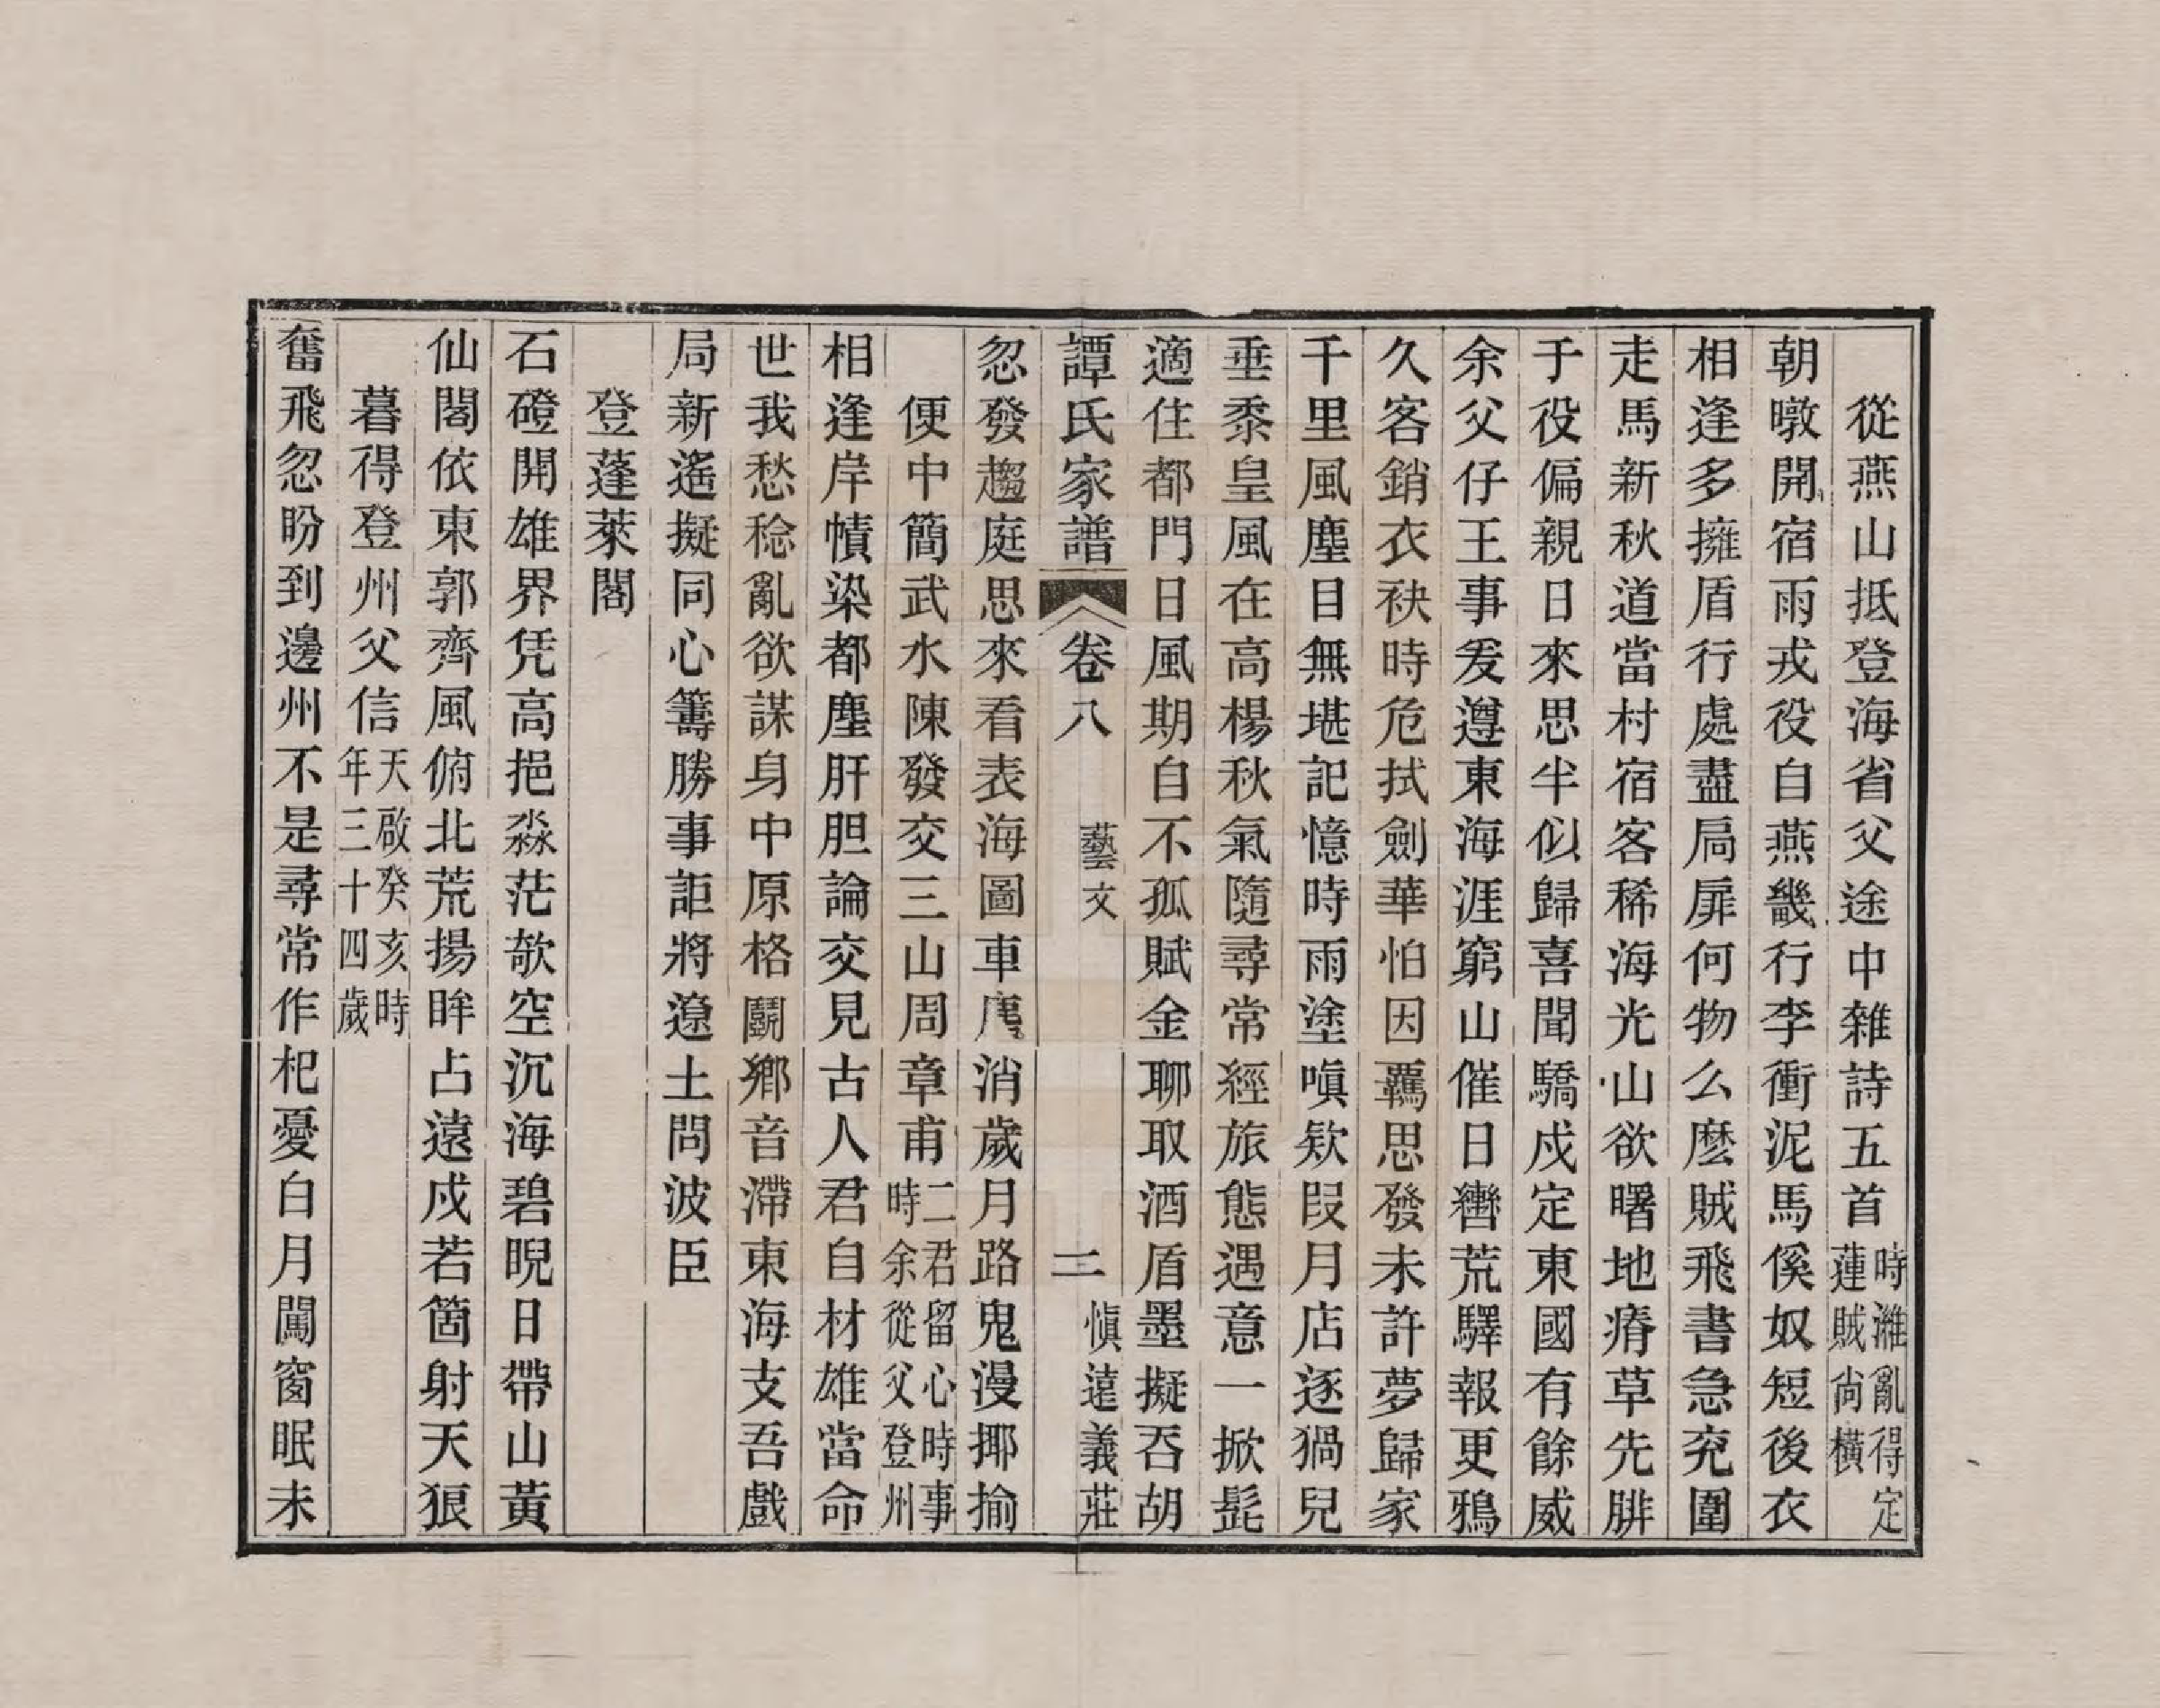 從燕山抵登海省父途中雜詩五首時濰亂得定蓮賊尙橫
朝暾開宿雨戎役自燕畿行李衝泥馬傒奴短後衣
相逢多擁盾行處盡局扉何物么麽賊飛書急充圍
走馬新秋道當村宿客稀海光山欲曙地瘠草先腓
于役偏親日來思半似歸喜聞驕戍定東國有餘威
余父仔王事爰遵東海涯窮山催日轡荒驛報更鴉
久客銷衣袂時危拭劍華怕因羈思發未許夢歸家
千里風塵目無堪記憶時雨塗嗔欵段月店逐猧兒
垂黍皇風在高楊秋氣隨尋常經旅態遇意一掀髭
適住都門日風期自不孤賦金聊取酒盾墨擬吞胡
譚氏家譜 卷八 藝文 二 愼遠義莊
忽發趨庭思來看表海圖車廆消歲月路鬼漫揶揄
便中簡武水陳發交三山周章甫二君留心時事時余從父登州
相逢岸幘染都塵肝胆論交見古人君自材雄當命
世我愁稔亂欲謀身中原格鬬鄉音滯東海支吾戲
局新遙擬同心籌勝事詎將遼土問波臣
登蓬萊閣
石磴開雄界凭高挹淼茫欹空沉海碧睨日帶山黃
仙閣依東郭齊風俯北荒揚眸占遠戍若箇射天狼
暮得登州父信天啟癸亥時年三十四歲
奮飛忽盼到邊州不是尋常作杞憂白月闖窗眠未